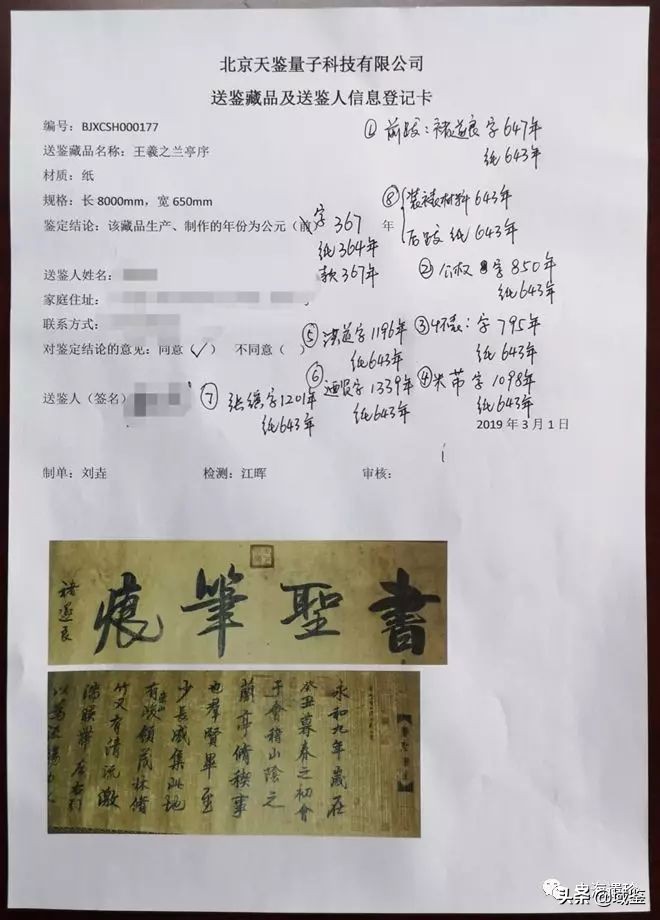 北京天鉴量子科技有限公司
送鉴藏品及送鉴人信息登记卡
编号：BJXCSH000177
①前跋：褚遂良 字647年
纸643年
送鉴藏品名称：王羲之兰亭序
材质：纸
规格：长 8000mm，宽 650mm
⑧装裱材料643年
后跋 纸643年
鉴定结论：该藏品生产、制作的年份为公元（前 字367 年
纸364年
款367年
②公权 字850年
纸643年
送鉴人姓名：
家庭住址：
联系方式：
⑤ 字1196年
纸643年
③怀素：字795年
纸643年
对鉴定结论的意见：同意（√） 不同意（ ）
⑥ 字1339年
纸643年
④米芾 字1098年
纸643年
送鉴人（签名）
⑦ 字1201年
纸643年
2019 年 3 月 1 日
制单：刘垚 检测：江晖 审核：
書聖筆痕
褚遂良
永和九年歲在
癸丑暮春之初會
于會稽山陰之
蘭亭脩稧事
也羣賢畢至
少長咸集此地
有峻領茂林脩
崇山
竹又有清流激
湍暎帶左右引
以為流觴曲水
头条@域鉴